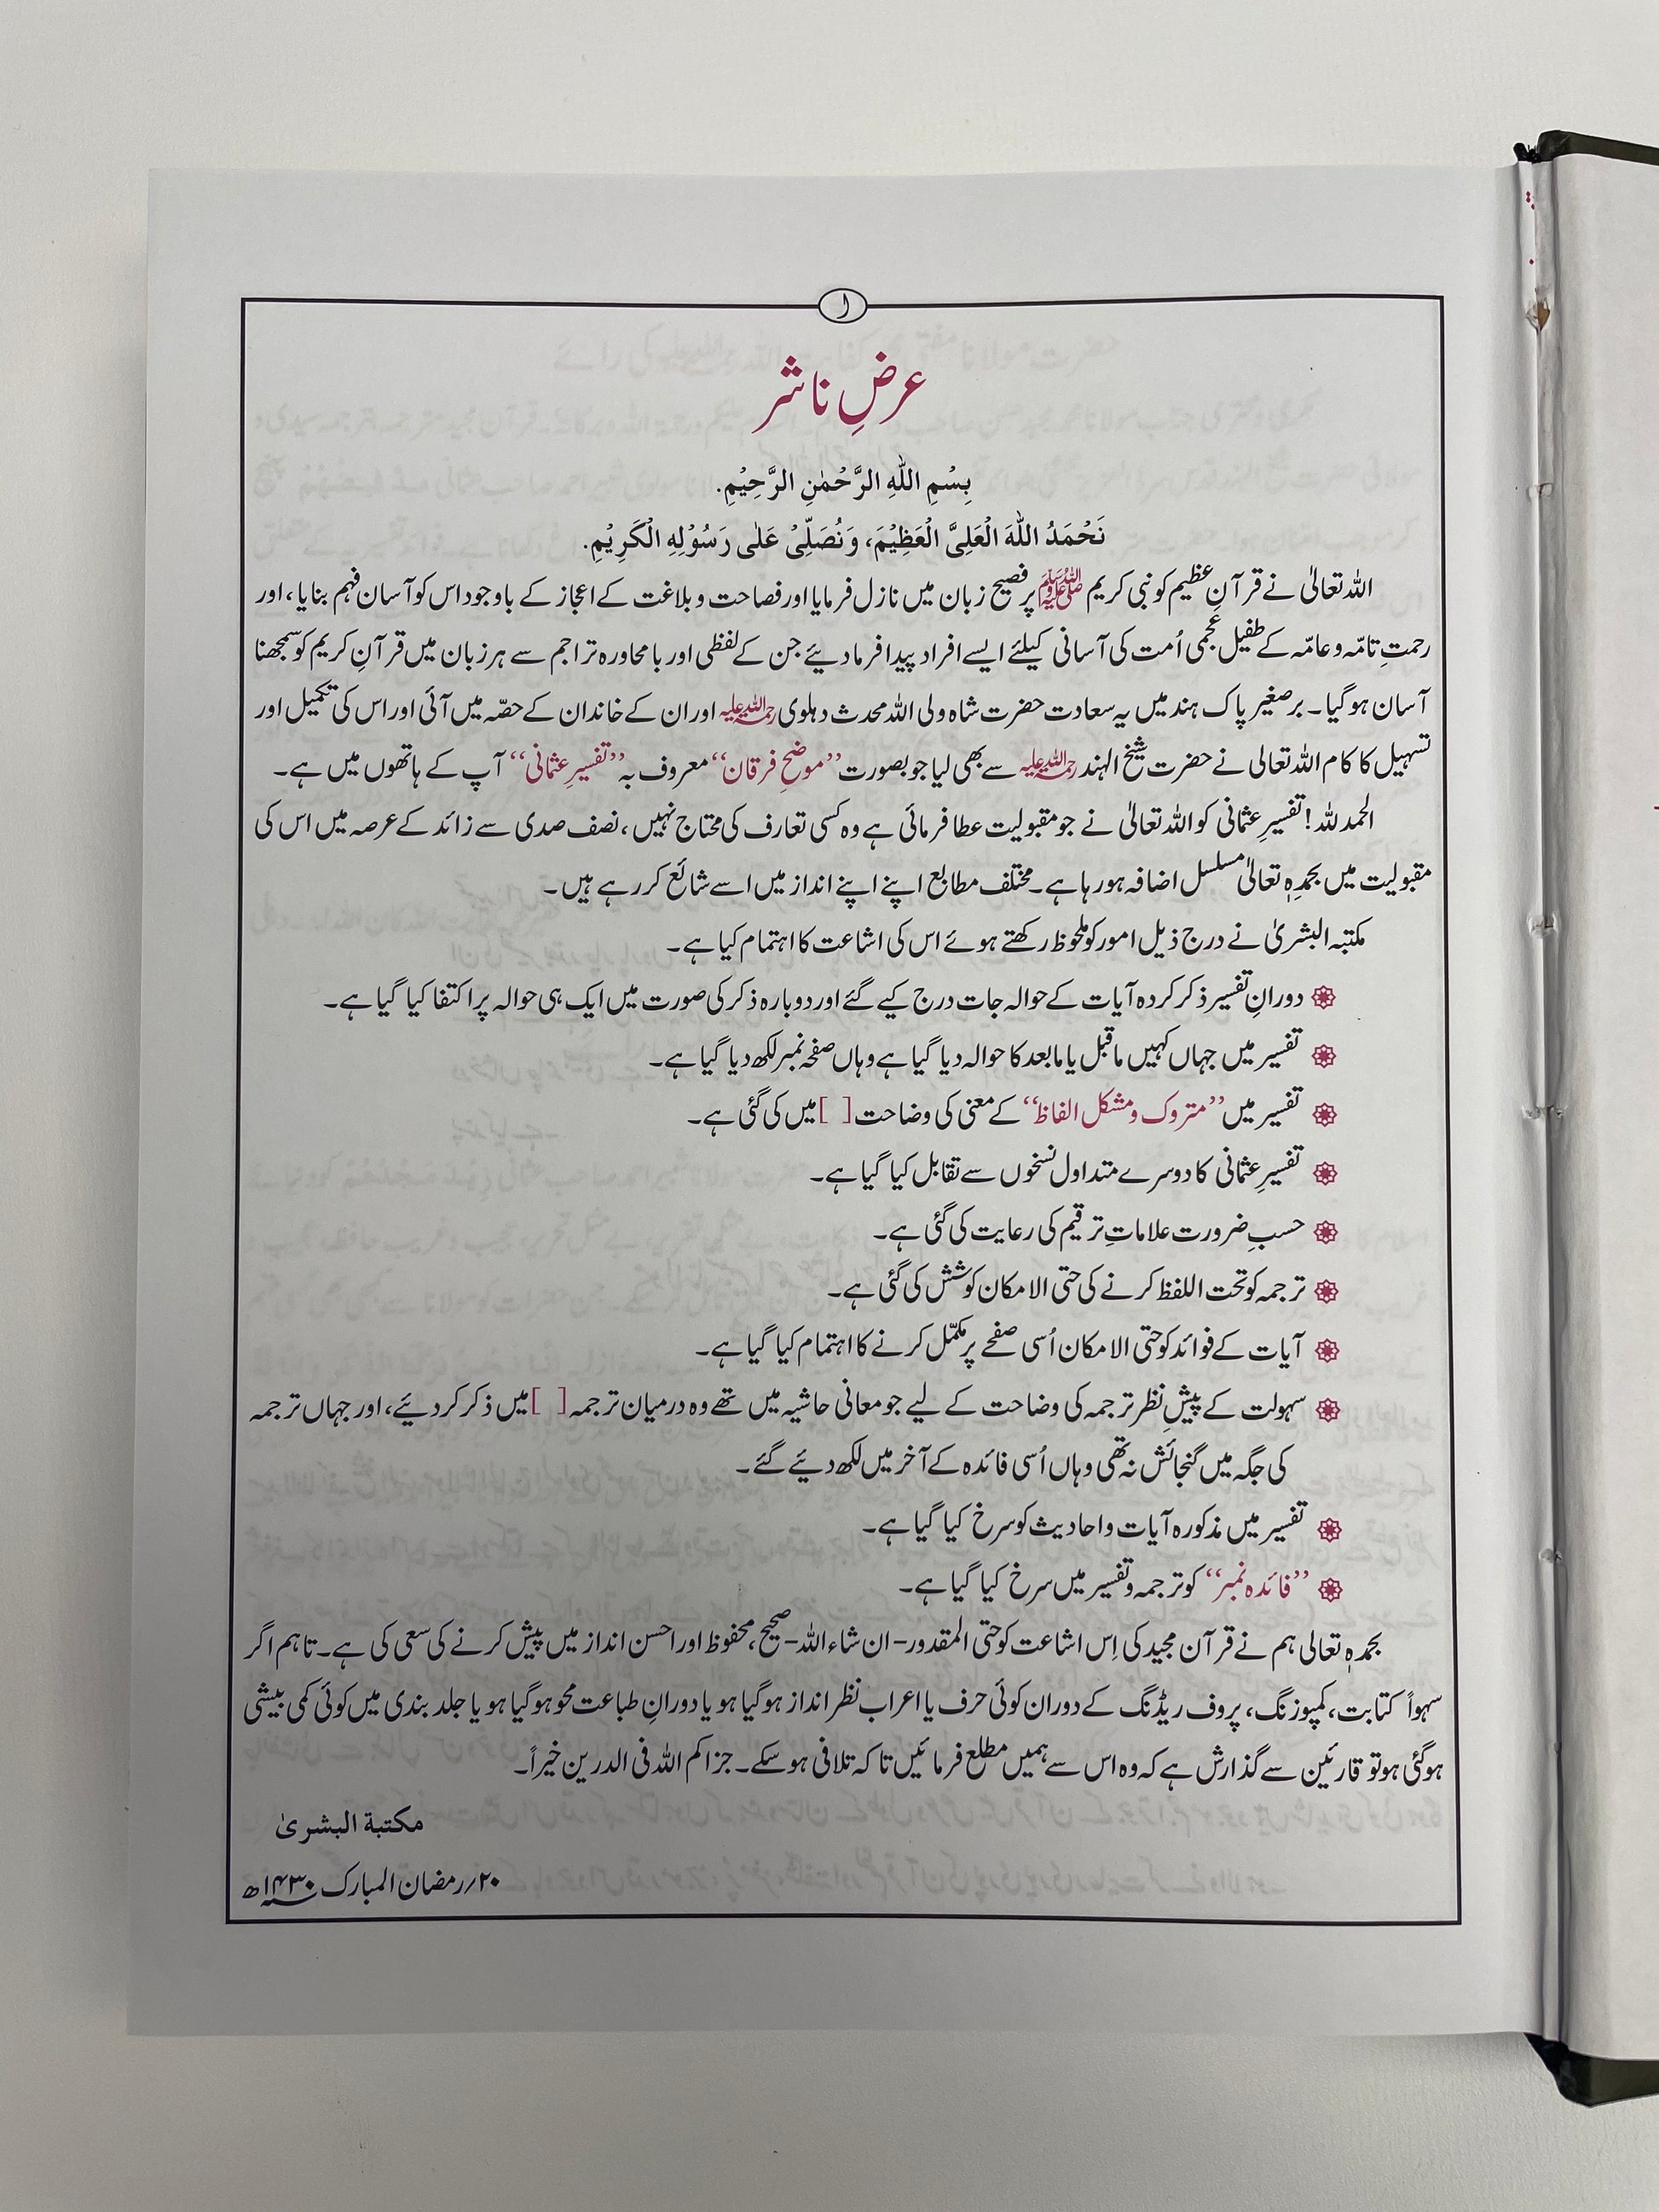 ۱
عرضِ ناشر
بِسْمِ اللّٰهِ الرَّحْمٰنِ الرَّحِيْمِ.
نَحْمَدُ اللّٰهَ الْعَلِيَّ الْعَظِيْمَ، وَنُصَلِّيْ عَلٰى رَسُوْلِهِ الْكَرِيْمِ.
اللہ تعالیٰ نے قرآنِ عظیم کو نبی کریم ﷺ پر فصیح زبان میں نازل فرمایا اور فصاحت و بلاغت کے اعجاز کے باوجود اس کو آسان فہم بنایا، اور
رحمتِ تامّہ و عامّہ کے طفیل عجمی اُمت کی آسانی کیلئے ایسے افراد پیدا فرما دیئے جن کے لفظی اور بامحاورہ تراجم سے ہر زبان میں قرآنِ کریم کو سمجھنا
آسان ہو گیا۔ برصغیر پاک ہند میں یہ سعادت حضرت شاہ ولی اللہ محدث دہلوی رحمۃ اللہ علیہ اور ان کے خاندان کے حصّہ میں آئی اور اس کی تکمیل اور
تسہیل کا کام اللہ تعالی نے حضرت شیخ الہند رحمۃ اللہ علیہ سے بھی لیا جو بصورت ’’موضح فرقان‘‘ معروف بہ ’’تفسیرِ عثمانی‘‘ آپ کے ہاتھوں میں ہے۔
الحمد للہ! تفسیرِ عثمانی کو اللہ تعالیٰ نے جو مقبولیت عطا فرمائی ہے وہ کسی تعارف کی محتاج نہیں، نصف صدی سے زائد کے عرصہ میں اس کی
مقبولیت میں بحمدِہٖ تعالیٰ مسلسل اضافہ ہو رہا ہے۔ مختلف مطابع اپنے اپنے انداز میں اسے شائع کر رہے ہیں۔
مکتبہ البشریٰ نے درج ذیل امور کو ملحوظ رکھتے ہوئے اس کی اشاعت کا اہتمام کیا ہے۔
دورانِ تفسیر ذکر کردہ آیات کے حوالہ جات درج کیے گئے اور دوبارہ ذکر کی صورت میں ایک ہی حوالہ پر اکتفا کیا گیا ہے۔
تفسیر میں جہاں کہیں ماقبل یا مابعد کا حوالہ دیا گیا ہے وہاں صفحہ نمبر لکھ دیا گیا ہے۔
تفسیر میں ’’متروک و مشکل الفاظ‘‘ کے معنی کی وضاحت [ ] میں کی گئی ہے۔
تفسیرِ عثمانی کا دوسرے متداول نسخوں سے تقابل کیا گیا ہے۔
حسبِ ضرورت علاماتِ ترقیم کی رعایت کی گئی ہے۔
ترجمہ کو تحت اللفظ کرنے کی حتی الامکان کوشش کی گئی ہے۔
آیات کے فوائد کو حتی الامکان اُسی صفحے پر مکمّل کرنے کا اہتمام کیا گیا ہے۔
سہولت کے پیشِ نظر ترجمہ کی وضاحت کے لیے جو معانی حاشیہ میں تھے وہ درمیان ترجمہ [ ] میں ذکر کر دیئے، اور جہاں ترجمہ
کی جگہ میں گنجائش نہ تھی وہاں اُسی فائدہ کے آخر میں لکھ دیئے گئے۔
تفسیر میں مذکورہ آیات و احادیث کو سرخ کیا گیا ہے۔
’’فائدہ نمبر‘‘ کو ترجمہ و تفسیر میں سرخ کیا گیا ہے۔
بحمدہٖ تعالی ہم نے قرآن مجید کی اِس اشاعت کو حتی المقدور- ان شاء اللہ- صحیح، محفوظ اور احسن انداز میں پیش کرنے کی سعی کی ہے۔ تاہم اگر
سہواً کتابت، کمپوزنگ، پروف ریڈنگ کے دوران کوئی حرف یا اعراب نظر انداز ہو گیا ہو یا دورانِ طباعت محو ہو گیا ہو یا جلد بندی میں کوئی کمی بیشی
ہو گئی ہو تو قارئین سے گذارش ہے کہ وہ اس سے ہمیں مطلع فرمائیں تا کہ تلافی ہو سکے۔ جزاکم اللہ فی الدرین خیراً۔
مكتبة البشریٰ
۲۰/رمضان المبارک ۱۴۳۰ھ